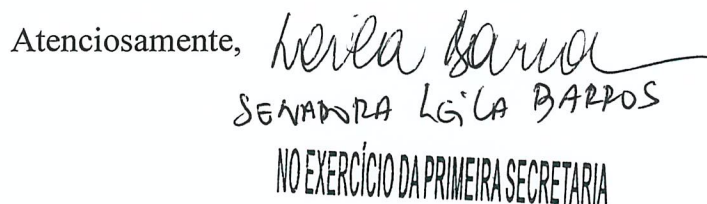 Atenciosamente, Leila Barros
SENADORA LEILA BARROS
NO EXERCÍCIO DA PRIMEIRA SECRETARIA